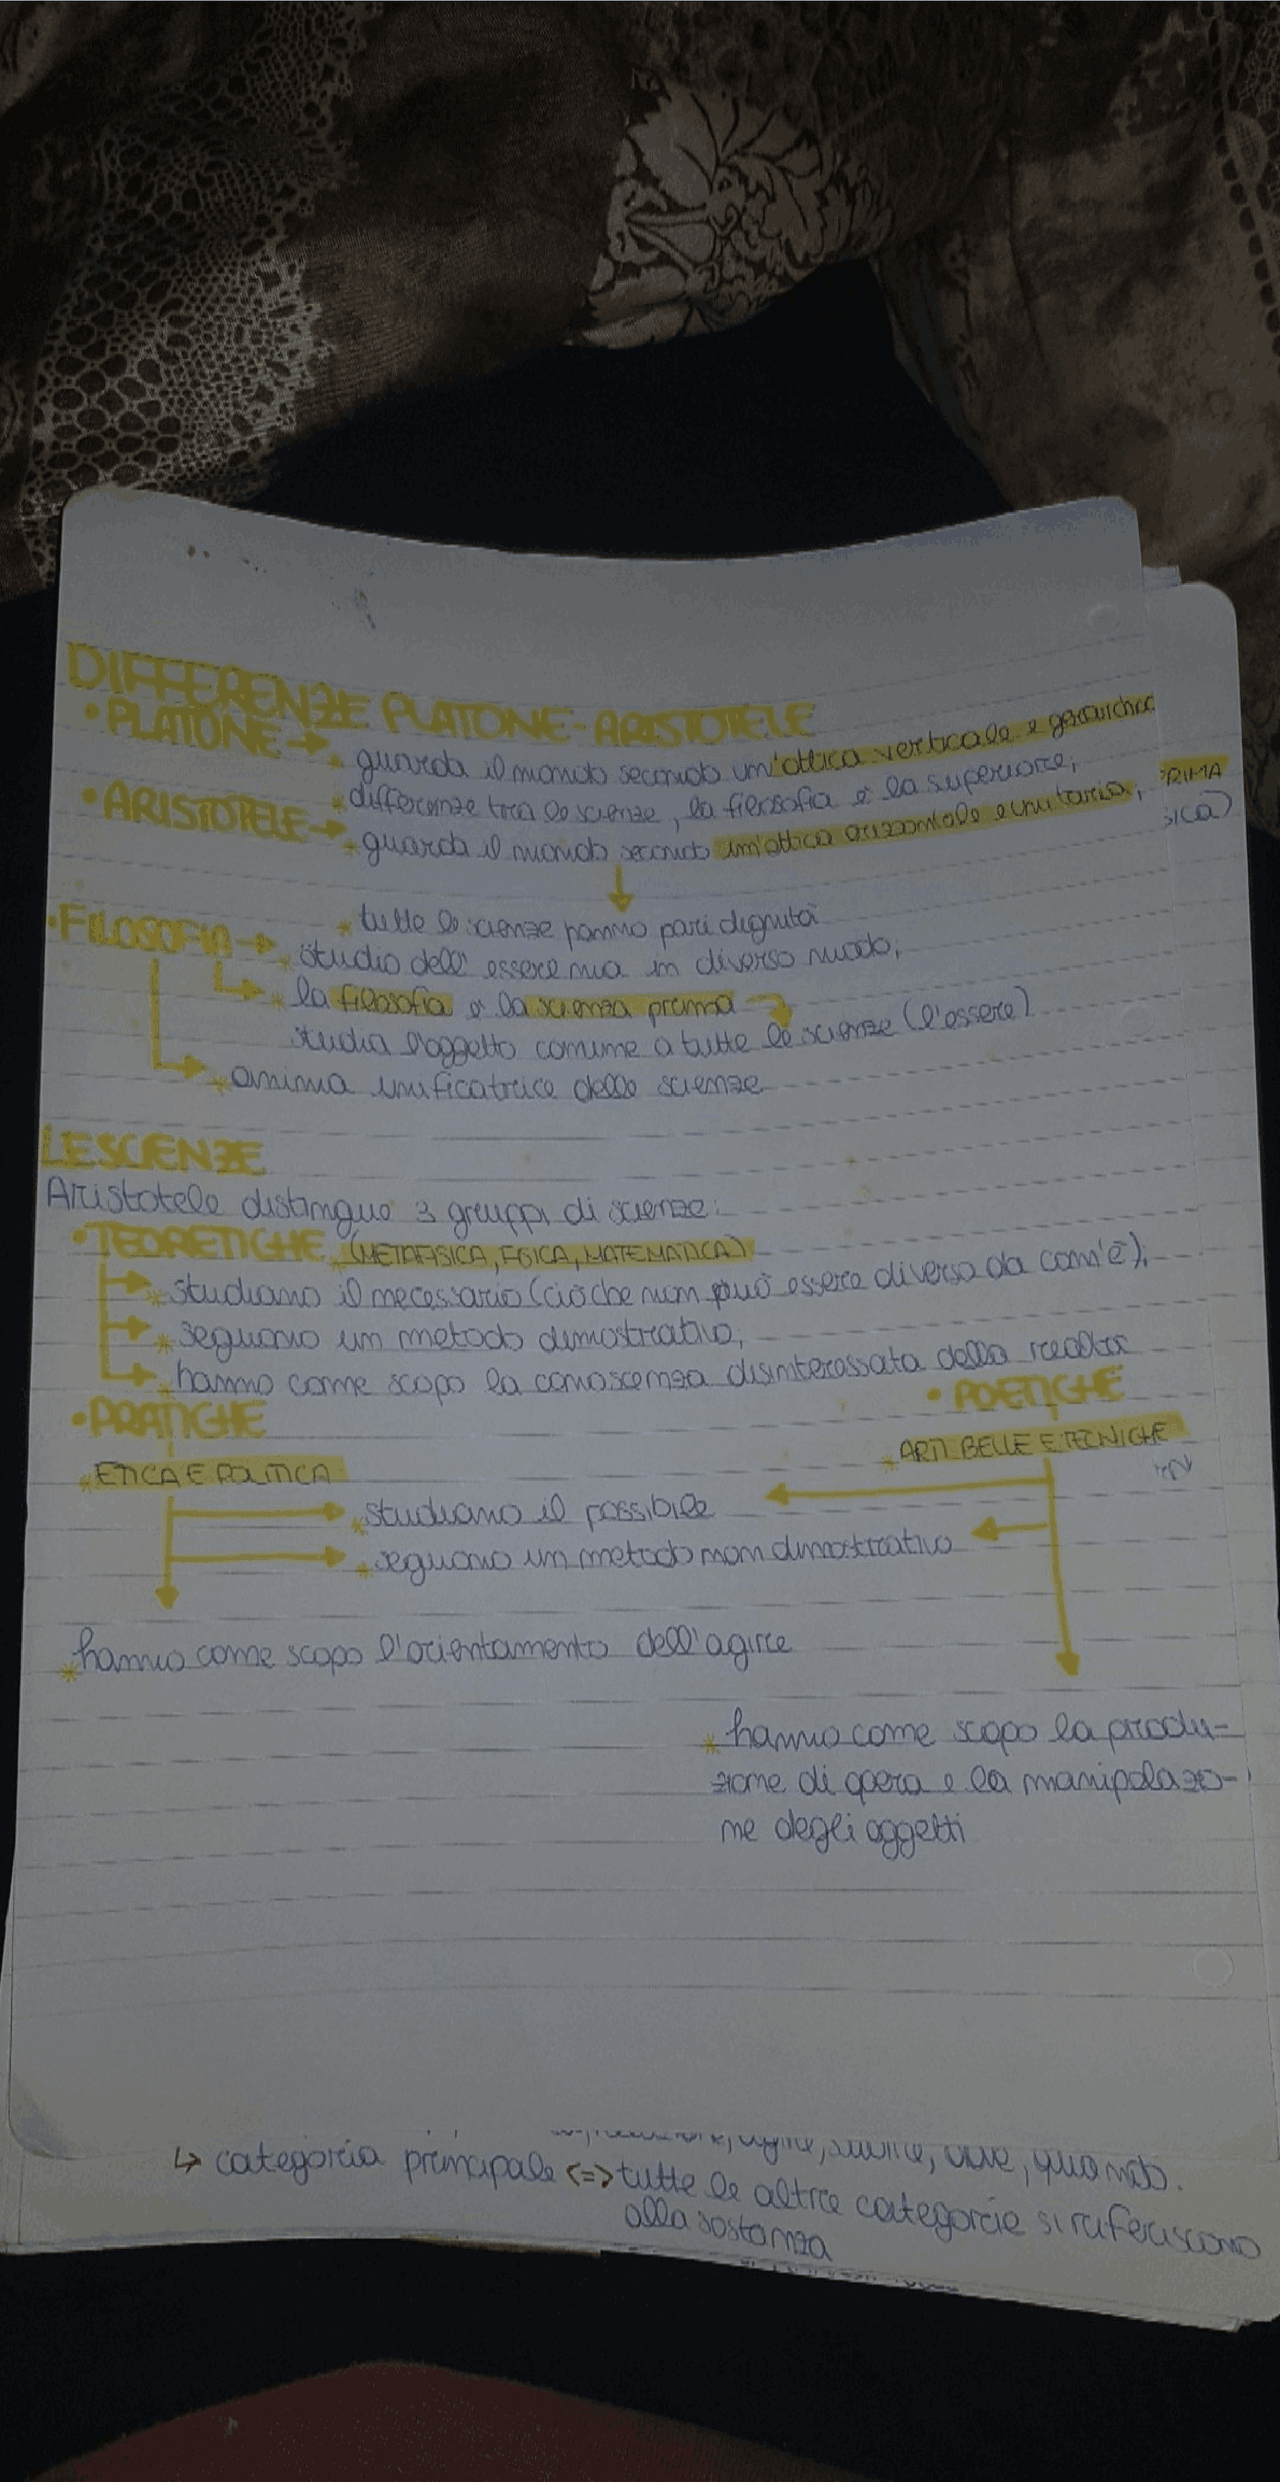 DIFFERENZE PLATONE-ARISTOTELE
• PLATONE → * guarda il mondo secondo un'ottica verticale e gerarchica
* differenze tra le scienze, la filosofia è la superiore;
• ARISTOTELE → * guarda il mondo secondo un'ottica orizzontale e unitaria;
PRIMA
SICA)
* tutte le scienze hanno pari dignità
• FILOSOFIA → * studio dell'essere ma in diverso modo;
* la filosofia è la scienza prima
studia l'oggetto comune a tutte le scienze (l'essere)
* anima unificatrice delle scienze
LE SCIENZE
Aristotele distingue 3 gruppi di scienze:
• TEORETICHE (METAFISICA, FISICA, MATEMATICA)
* studiano il necessario (ciò che non può essere diverso da com'è);
* seguono un metodo dimostrativo;
* hanno come scopo la conoscenza disinteressata della realtà
• PRATICHE
• POIETICHE
* ETICA E POLITICA
* ARTI BELLE E TECNICHE
* studiano il possibile
* seguono un metodo non dimostrativo
* hanno come scopo l'orientamento dell'agire
* hanno come scopo la produ-
zione di opera e la manipolazio-
ne degli oggetti
agire, subire, dove, quando.
↳ categoria principale <=> tutte le altre categorie si riferiscono
alla sostanza